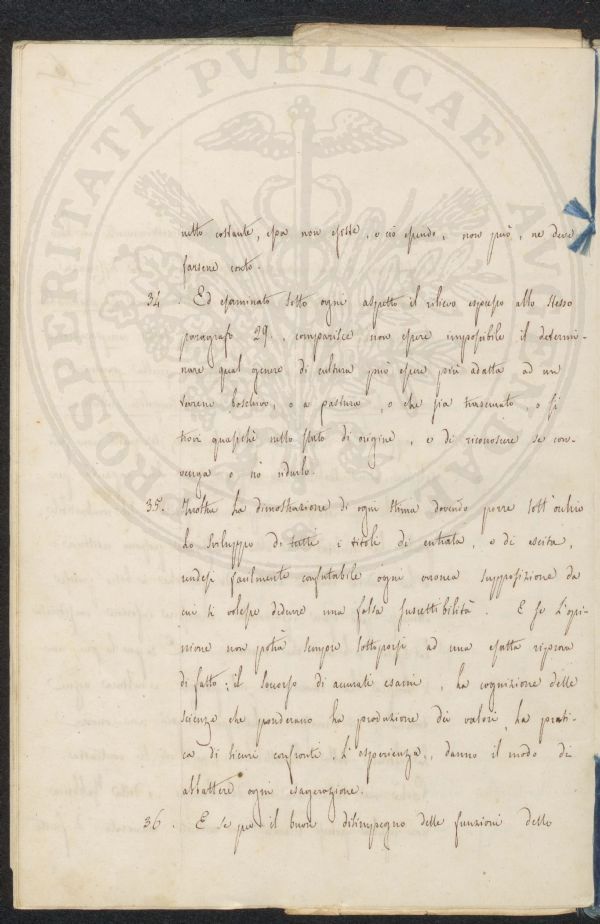 PROSPERITATI PVBLICAE AVGENDAE
netto costante, essa non esiste, e ciò essendo, non può, ne deve
farsene conto.
34. Ed esaminato sotto ogni aspetto il rilievo espresso allo stesso
paragrafo 29., comparisce non essere impossibile il determi-
nare qual genere di cultura può essere più adatta ad un
terreno boschivo, o a pastura, o che sia trascurato, o si
trovi quasichè nello stato di origine, e di riconoscere se con-
venga o nò ridurlo.
35. Inoltre la dimostrazione di ogni stima dovendo porre sott'occhio
lo sviluppo di tutti i titoli di entrata, e di escita,
rendesi facilmente confutabile ogni erronea supposizione da
cui si volesse dedurre una falsa suscettibilità. E se l'opi-
nione non potrà sempre sottoporsi ad una esatta riprova
di fatto; il soccorso di accurati esami, la cognizione delle
scienze che ponderano la produzione dei valori, la prati-
ca di sicuri confronti, l'esperienza, danno il modo di
abbattere ogni esagerazione.
36. E se per il buon disimpegno delle funzioni dello